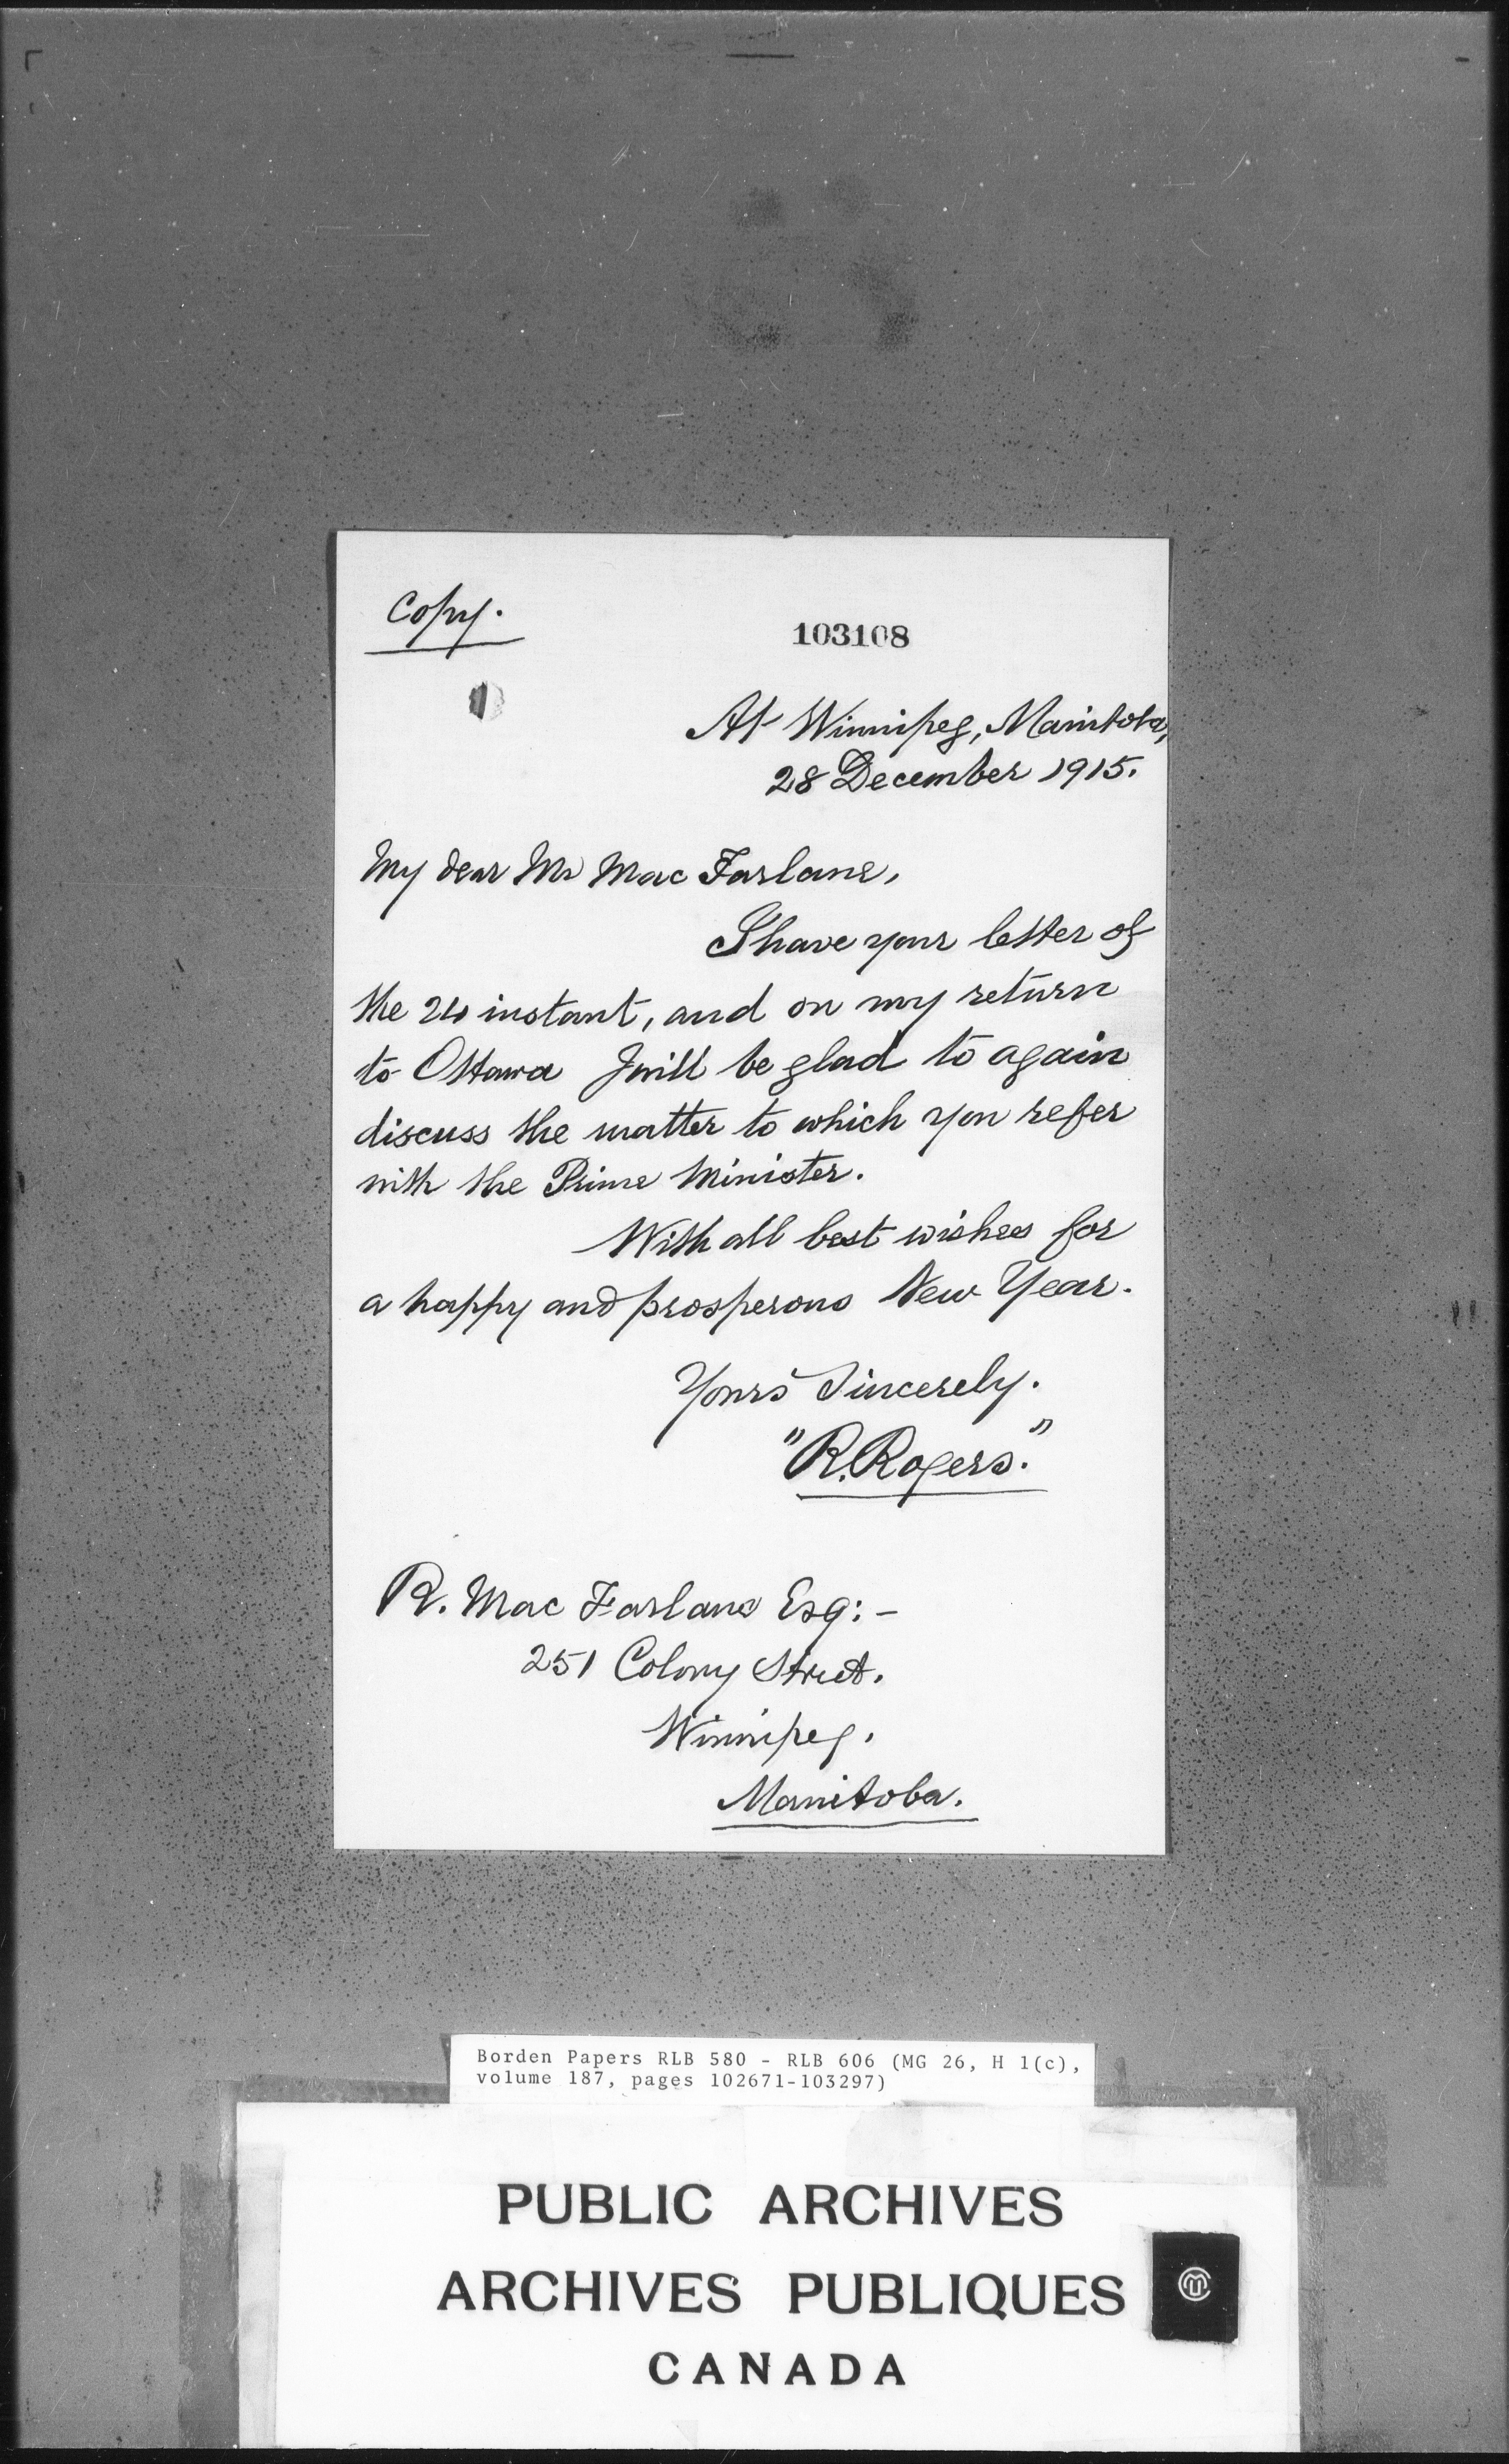 Copy.
103108
At Winnipeg, Manitoba,
28 December 1915.
My dear Mr Mac Farlane,
I have your letter of
the 24 instant, and on my return
to Ottawa I will be glad to again
discuss the matter to which you refer
with the Prime Minister.
With all best wishes for
a happy and prosperous New Year.
Yours Sincerely.
"R. Rogers."
R. Mac Farlane Esq:-
251 Colony Street.
Winnipeg.
Manitoba.
Borden Papers RLB 580 - RLB 606 (MG 26, H 1(c),
volume 187, pages 102671-103297)
PUBLIC ARCHIVES
ARCHIVES PUBLIQUES
CANADA